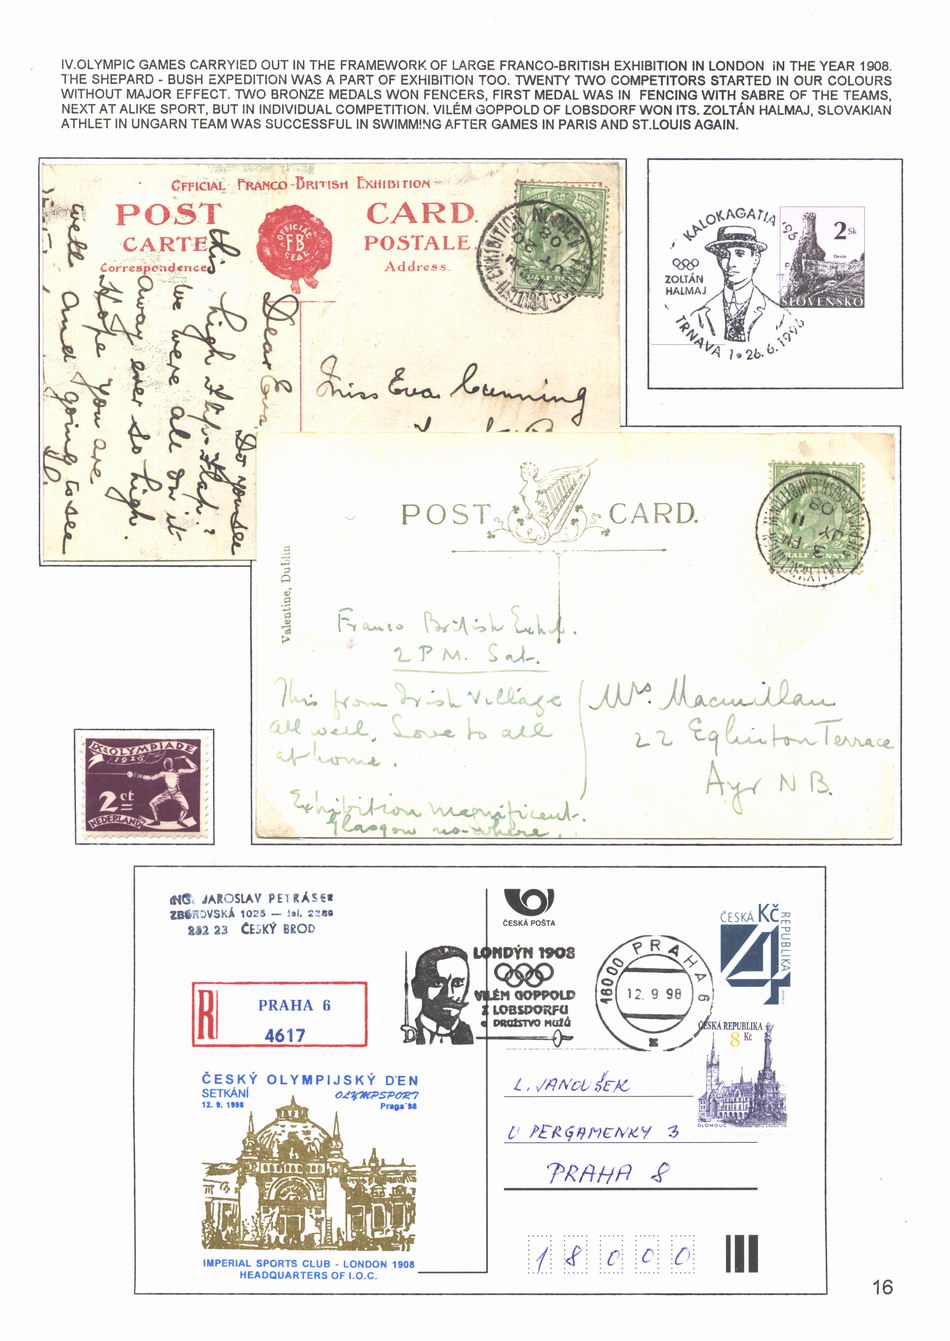 IV.OLYMPIC GAMES CARRYIED OUT IN THE FRAMEWORK OF LARGE FRANCO-BRITISH EXHIBITION IN LONDON IN THE YEAR 1908.
THE SHEPARD - BUSH EXPEDITION WAS A PART OF EXHIBITION TOO. TWENTY TWO COMPETITORS STARTED IN OUR COLOURS
WITHOUT MAJOR EFFECT. TWO BRONZE MEDALS WON FENCERS, FIRST MEDAL WAS IN FENCING WITH SABRE OF THE TEAMS,
NEXT AT ALIKE SPORT, BUT IN INDIVIDUAL COMPETITION. VILÉM GOPPOLD OF LOBSDORF WON ITS. ZOLTÁN HALMAJ, SLOVAKIAN
ATHLET IN UNGARN TEAM WAS SUCCESSFUL IN SWIMMING AFTER GAMES IN PARIS AND ST.LOUIS AGAIN.
OFFICIAL FRANCO-BRITISH EXHIBITION
POST CARD.
CARTE POSTALE.
Correspondence Address.
OFFICIAL
FB
SEAL
Dear Eva,
Do you see
this high flip-flap?
we were all on it
away ever so high.
Hope you are
well and going to see
Miss Eva Cunning
KALOKAGATIA '96
ZOLTÁN
HALMAJ
TRNAVA 1 • 26.6.1996
2 Sk
Devín
SLOVENSKO
POST CARD.
Valentine, Dublin
HALF PENNY
Franco British Exhib.
2 P.M. Sat.
This from Irish Village
all well. Love to all
at home.
Exhibition magnificent.
Glasgow no-where.
Mrs Macmillan
22 Eglinton Terrace
Ayr N.B.
IXe OLYMPIADE
1928
2 ct
NEDERLAND
ING. JAROSLAV PETRÁSEK
ZBOROVSKÁ 1025 — tel. 2289
282 23 ČESKÝ BROD
ČESKÁ POŠTA
R
PRAHA 6
4617
LONDÝN 1908
VILÉM GOPPOLD
Z LOBSDORFU
a DRUŽSTVO MUŽŮ
16000 PRAHA 6
12.9.98
ČESKÁ Kč
REPUBLIKA
4
ČESKÁ REPUBLIKA
8 Kč
OLOMOUC
ČESKÝ OLYMPIJSKÝ DEN
SETKÁNÍ OLYMPSPORT
12. 9. 1998 Praga'98
IMPERIAL SPORTS CLUB - LONDON 1908
HEADQUARTERS OF I.O.C.
L. JANOUŠEK
U PERGAMENKY 3
PRAHA 8
18000
16